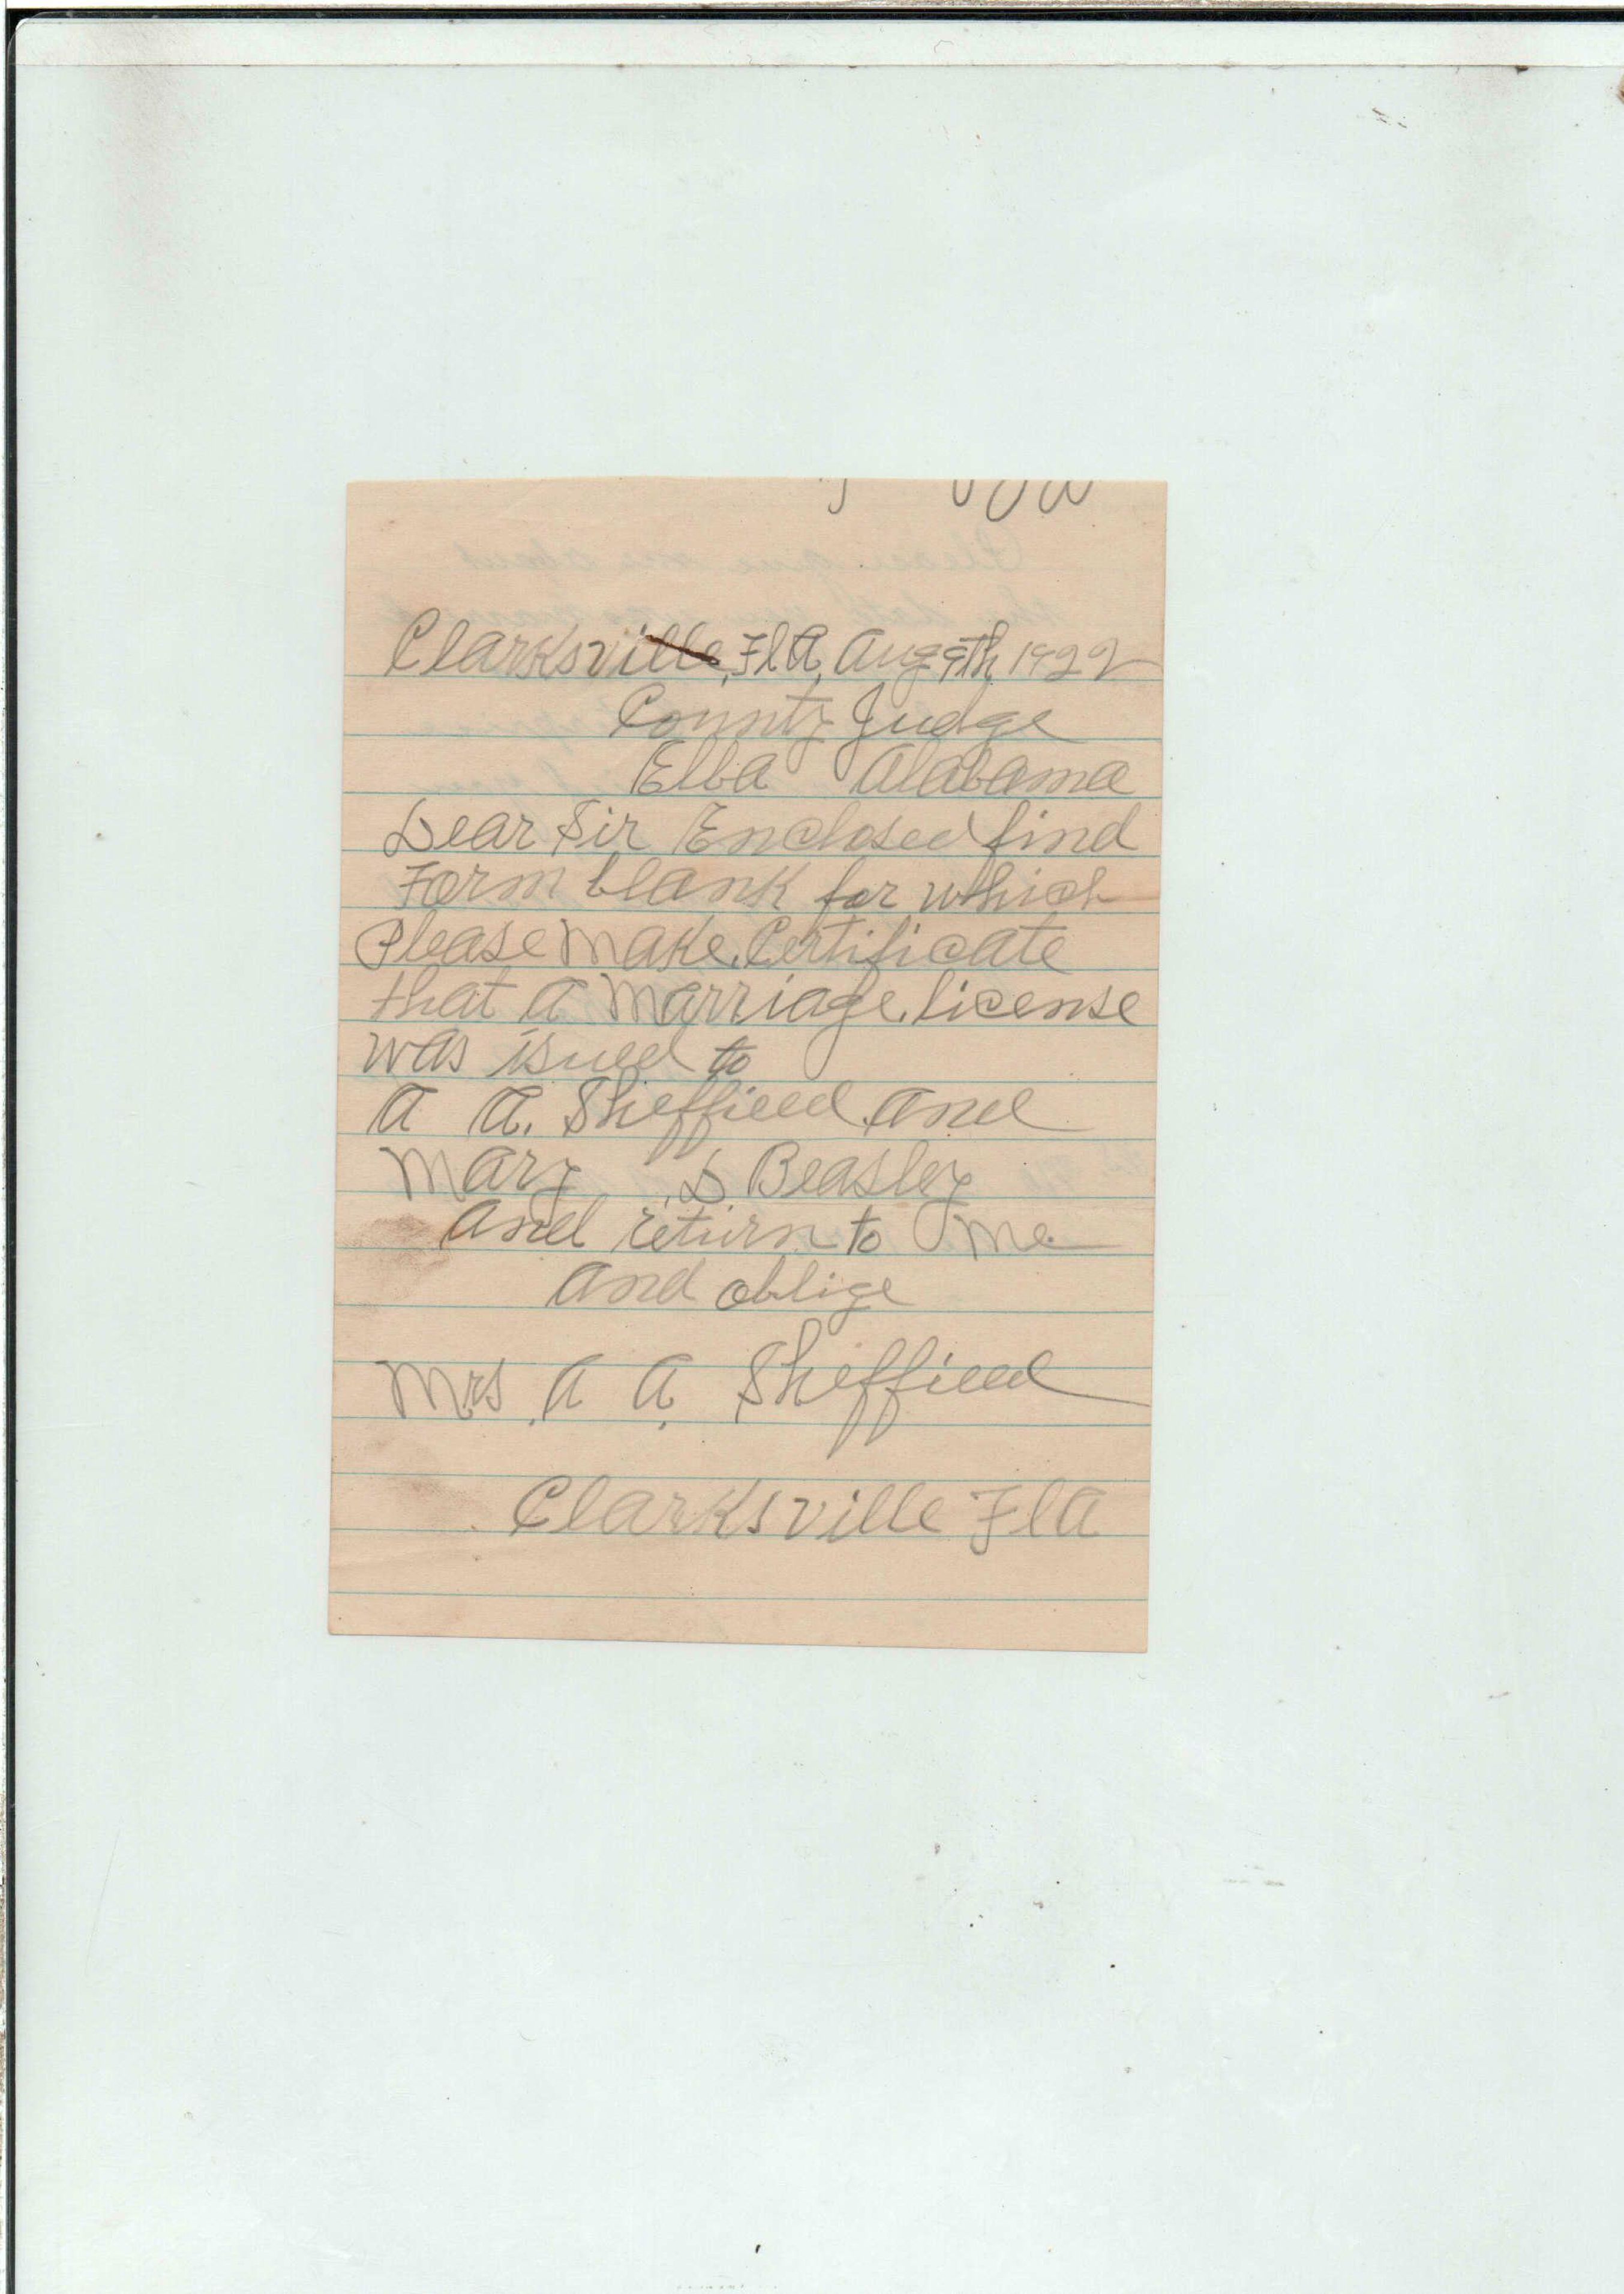 Clarksville, Fla, Aug 9th, 1922
County Judge
Elba Alabama
Dear Sir Enclosed find
Form blank for which
Please Make Certificate
that a Marriage license
was isued to
A A. Sheffield and
Mary D Beasley
and return to me
and oblige
Mrs A A Sheffield
Clarksville Fla